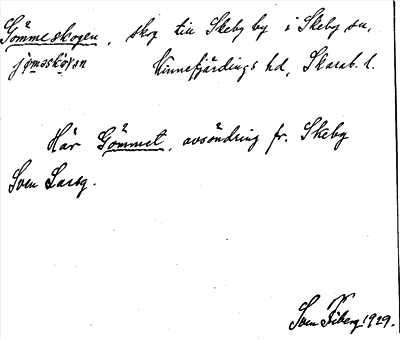 Gömmeskogen, skog till Skeby by i Skeby sn,
Kinnefjärdings hd, Skarab. l.
Här Gömmet, avsöndring fr. Skeby
Sven Larsg.
Sven Fiberg 1929.